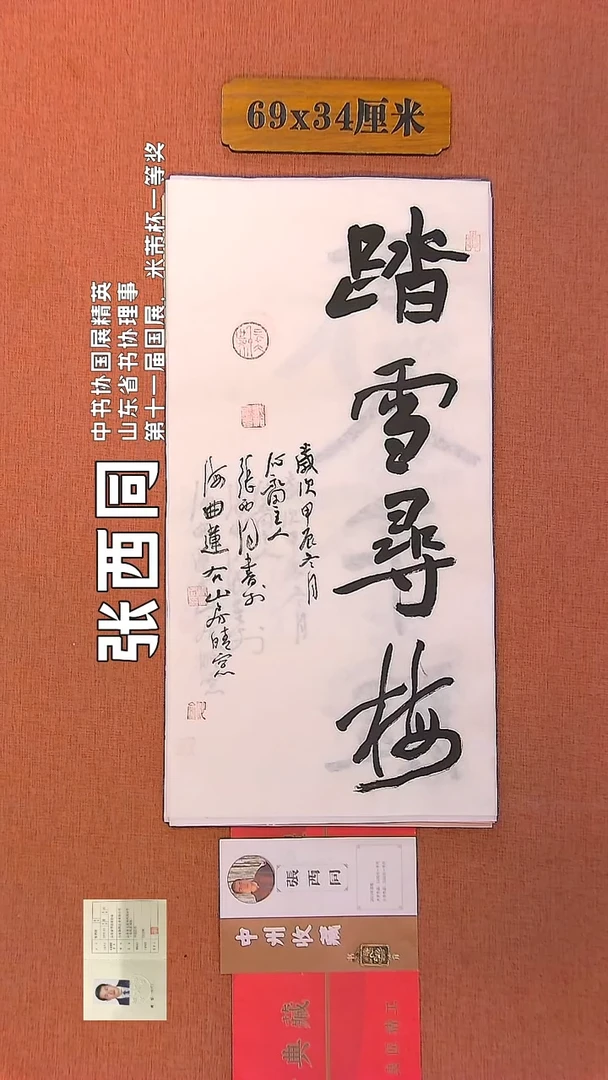 69x34厘米
踏雪尋梅
歲次甲辰冬月
石齋主人
張西同書於
海曲蓮右山房晴窗
张西同
中书协国展精英
山东省书协理事
第十一届国展、米芾杯一等奖
張西同
中州收藏
典藏